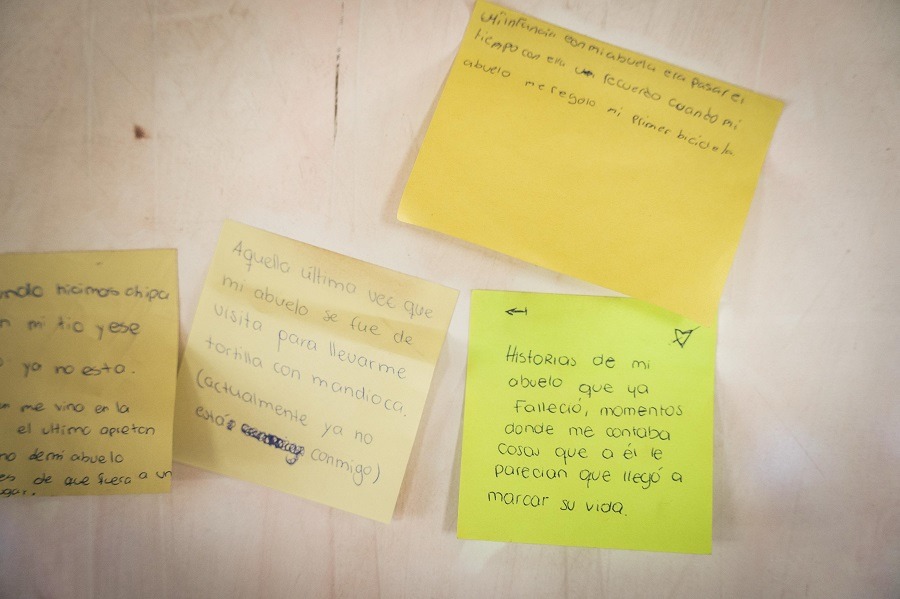 Mi infancia con mi abuela era pasar el
tiempo con ella un recuerdo cuando mi
abuelo me regalo mi primer bicicleta
hicimos chipa
mi tio y ese
ya no esta.
me vino en la
el ultimo apreton
de mi abuelo
de que fuera a un
Aquella última vec que
mi abuelo se fue de
visita para llevarme
tortilla con mandioca.
(actualmente ya no
está conmigo)
Historias de mi
abuelo que ya
Falleció, momentos
donde me contaba
cosas que a él le
parecian que llegó a
marcar su vida.